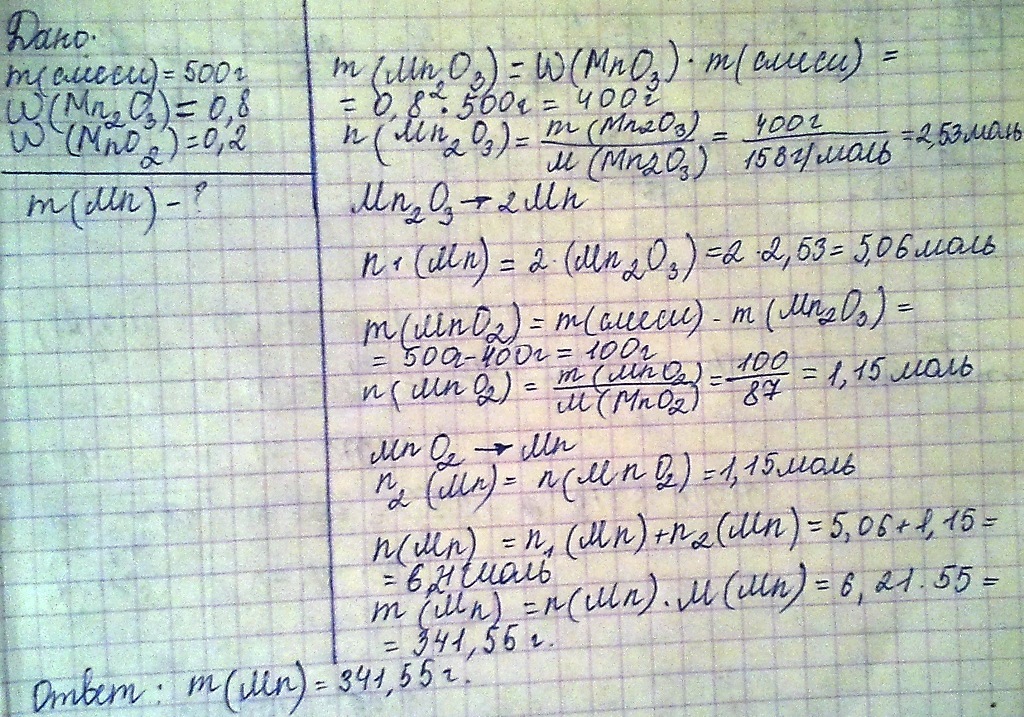 Дано:
m(смеси) = 500г
W(Mn2O3) = 0,8
W(MnO2) = 0,2
m(Mn) - ?
m(Mn2O3) = W(MnO3) · m(смеси) =
= 0,8 · 500г = 400г
n(Mn2O3) = m(Mn2O3) / M(Mn2O3) = 400г / 158г/моль = 2,53 моль
Mn2O3 → 2Mn
n1(Mn) = 2 · (Mn2O3) = 2 · 2,53 = 5,06 моль
m(MnO2) = m(смеси) - m(Mn2O3) =
= 500г - 400г = 100г
n(MnO2) = m(MnO2) / M(MnO2) = 100 / 87 = 1,15 моль
MnO2 → Mn
n2(Mn) = n(MnO2) = 1,15 моль
n(Mn) = n1(Mn) + n2(Mn) = 5,06 + 1,15 =
= 6,21 моль
m(Mn) = n(Mn) · M(Mn) = 6,21 · 55 =
= 341,55 г.
Ответ: m(Mn) = 341,55 г.